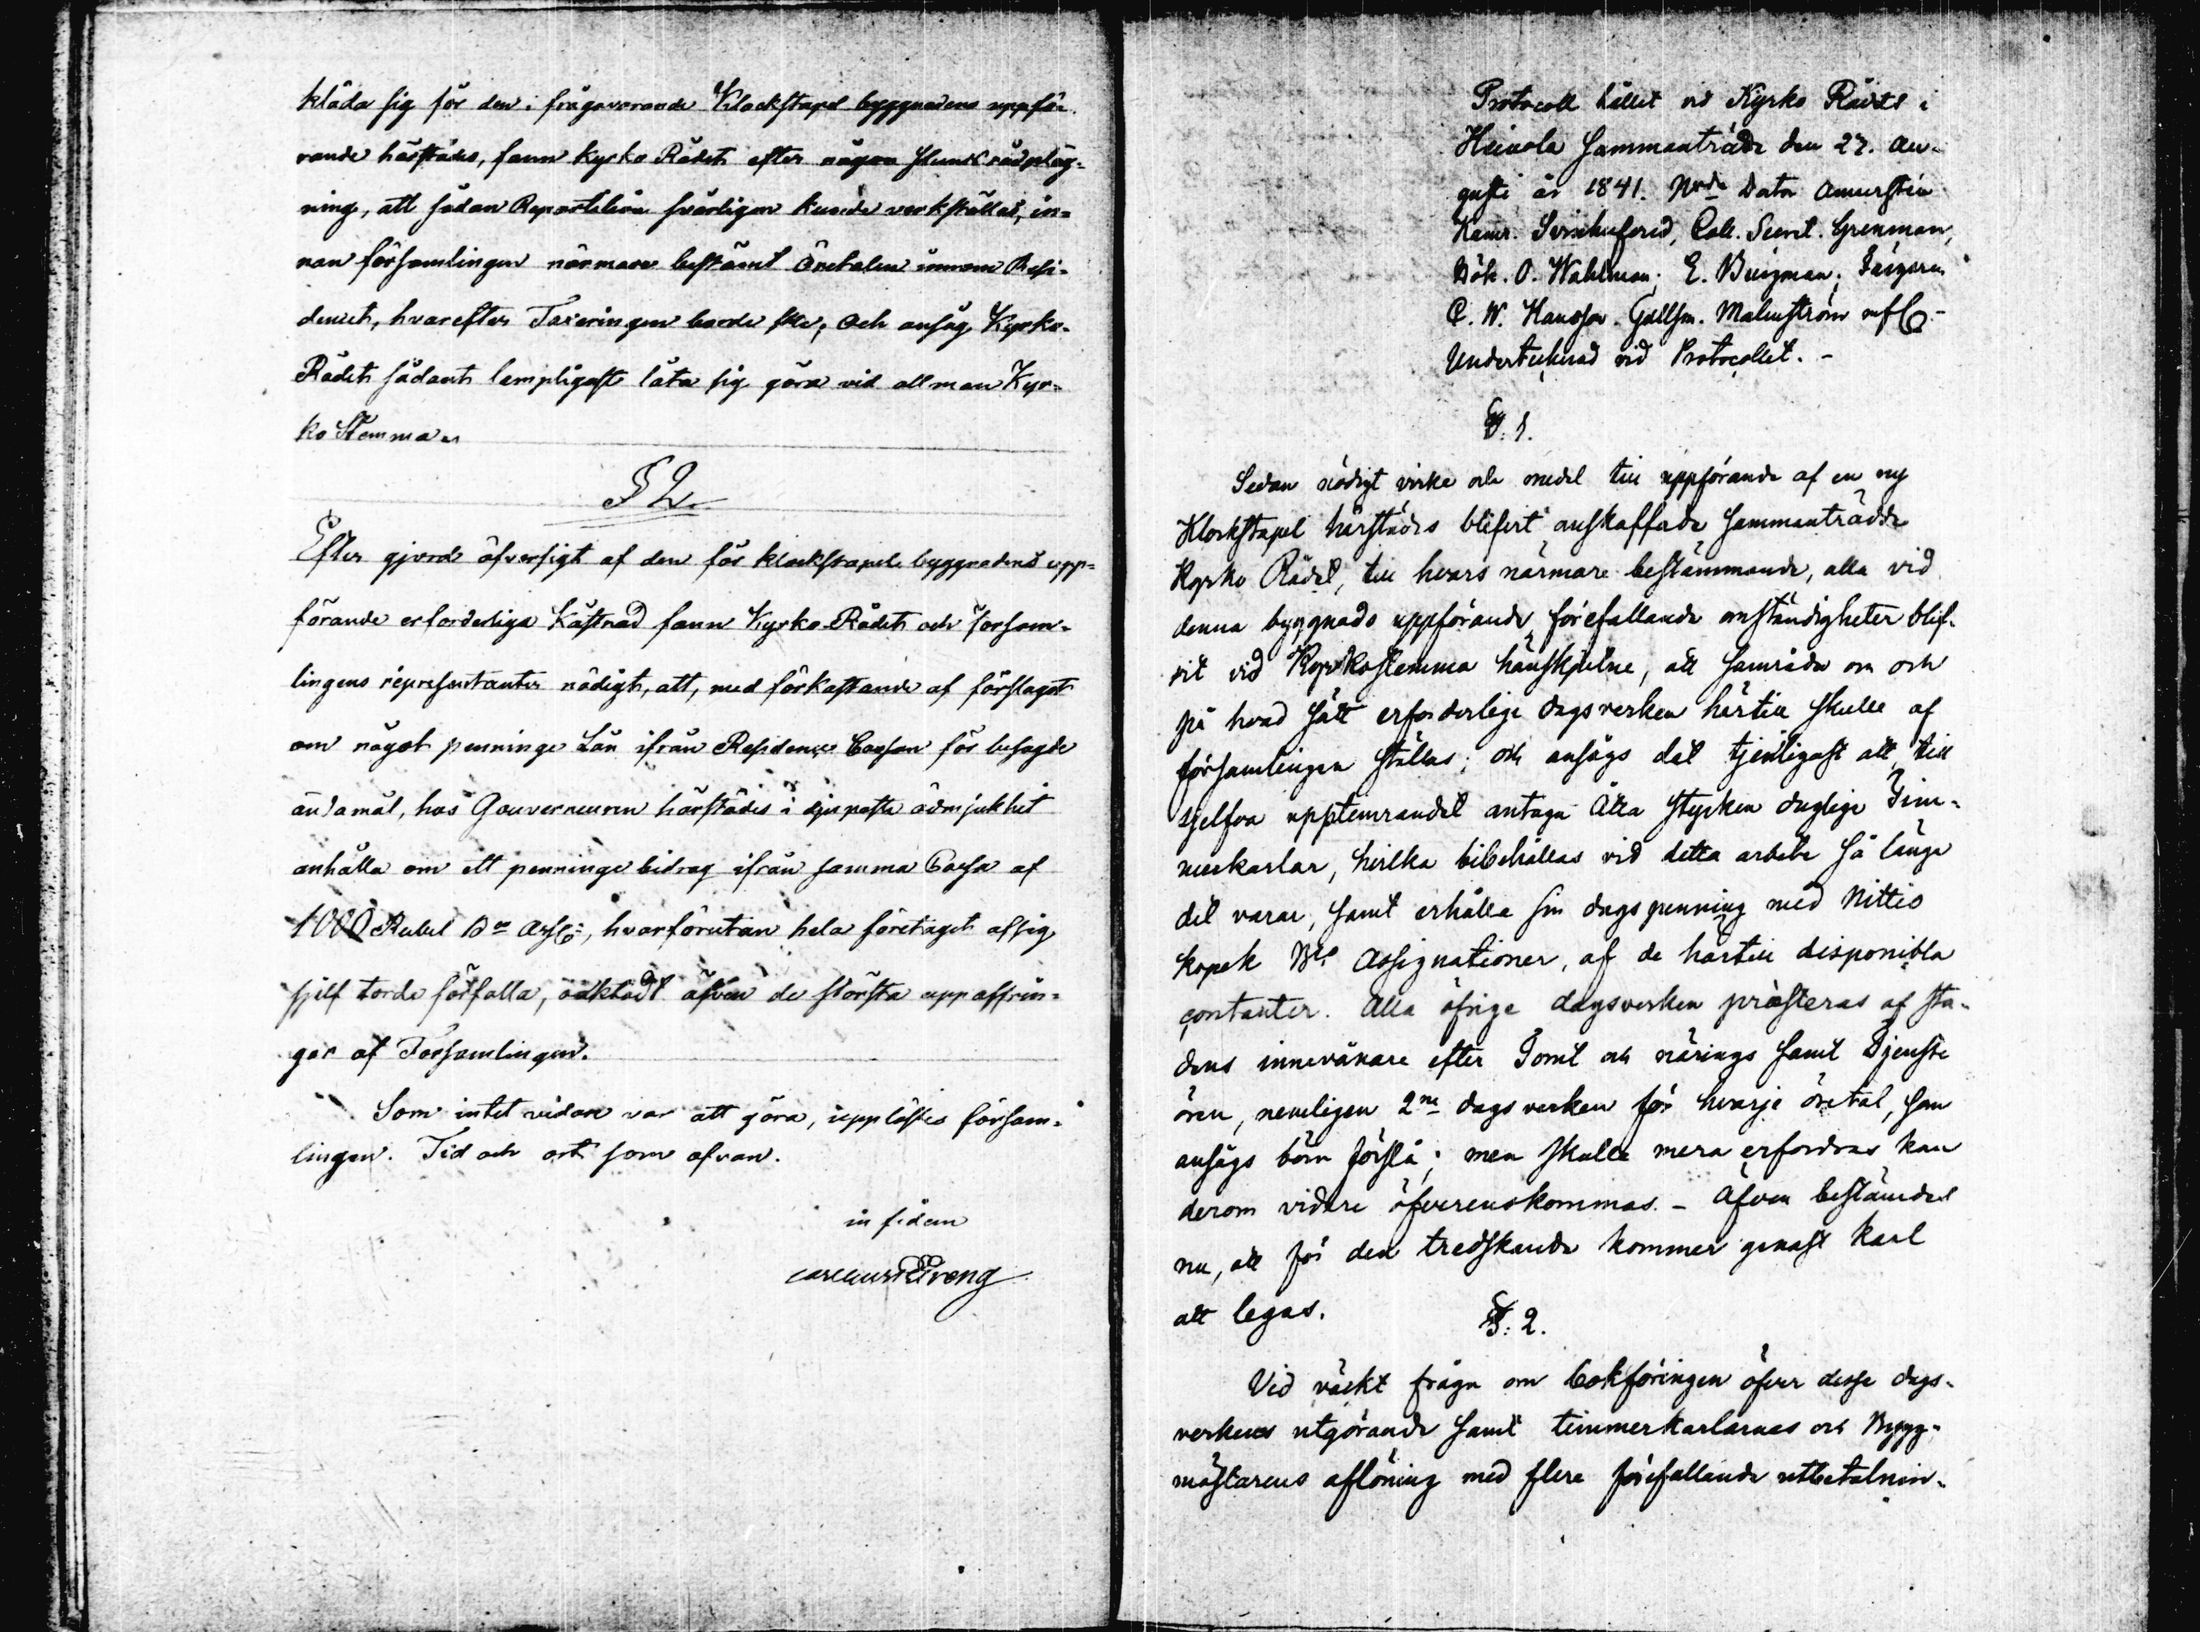 kläda sig för den i frågavarande Klockstapel byggnadens uppfö-
rande härstädes, fann Kyrko Rådet efter någon stunds rådpläg-
ning, att sådan Repartition svårligen kunde verkställas, in-
nan församlingen närmare bestämt Öretalen innom Resi-
dencet, hvarefter Taxeringen borde ske, Och ansåg Kyrko-
Rådet sådant lämpligast låta sig göra vid allmän Kyr-
ko Stemma
§ 2.
Efter gjord öfversigt af den för klockstapels byggnadens upp-
förande erforderliga Kåstnad fann Kyrko-Rådet och försam-
lingens representanter nödigt, att, med förkastande af förslaget
om något penninge Lån ifrån Residence Cassan för besagde
ändamål, hos Gouverneuren härstädes i djupaste ödmjukhet
anhålla om ett penninge bidrag ifrån samma Cassa af
1000 Rubel Bco Ass, hvarförutan hela företaget af sig
sjelf torde förfalla, oaktadt äfven de största uppoffrin-
gar af Församlingen.
Som intet vidare var att göra, upplöstes försam-
lingen. Tid och ort som ofvan.
in fidem
Protocoll hållet vid Kyrko Rådets i
Heinola Sammanträde den 27. Au-
gusti år 1841. Nrde Dato
Kamr. Svinhufvud, Coll. Secret. Grenman,
Bök. O. Wahlman, E. Bergman, Färgaren
C. W. Hansson. Gellsm. Malmström
Undertecknad vid Protocollet. -
§. 1.
Sedan nödigt virke och medel till uppförande af en ny
Klockstapel härstädes blifvit anskaffade sammanträdde
Kyrko Rådet, till hvars närmare bestämmande, alla vid
denna byggnads uppförande förefallande omständigheter blif-
vit vid Kyrkostemma hänskjutne, att samråda om och
på hvad sätt erforderlige dagsverken härtill skulle af
församlingen ställas; och ansågs det tjenligast att till
sjelfva upptimrandet antaga Åtta stycken duglige Tim-
merkarlar, hvilka bibehållas vid detta arbete så länge
det varar, samt erhålla sin dagspenning med Nittio
kopek Bco Assignationer, af de härtill disponibla
contanter. Alla öfrige dagsverken præsteras af sta-
dens innevånare efter Tomt och närings samt Tjenste
ören, nemligen 2ne dagsverken för hvarje öretal, som
ansågs börn förslå; men skulle mera erfordras kan
derom vidare öfverenskommas. - Äfven bestämdes
nu, att för den tredskande kommer genast karl
att legas.
§: 2.
Vid väckt fråga om bokföringen öfver desse dags-
verkens utgörande samt timmerkarlarnas och Bygg-
mästarens aflöning med flera förefallande utbetalnin-